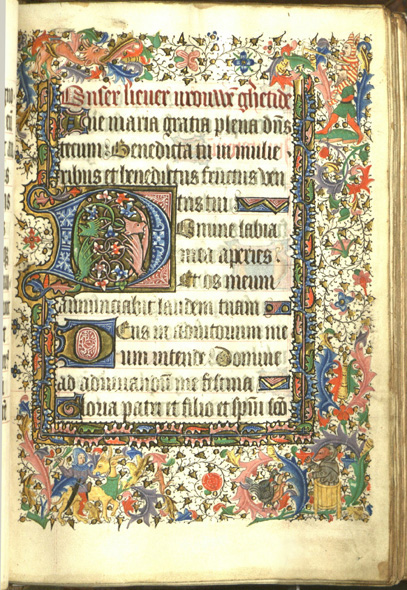 Onser liever vrouwen ghetide
Aue maria gratia plena dns
tecum Benedicta tu in mulie
ribus et benedictus fructus ven
tris tui
Domine labia
mea aperies
Et os meum
annunciabit laudem tuam
Deus in adiutorium me
um intende Domine
ad adiuuandum me festina
Gloria patri et filio et spiri sco